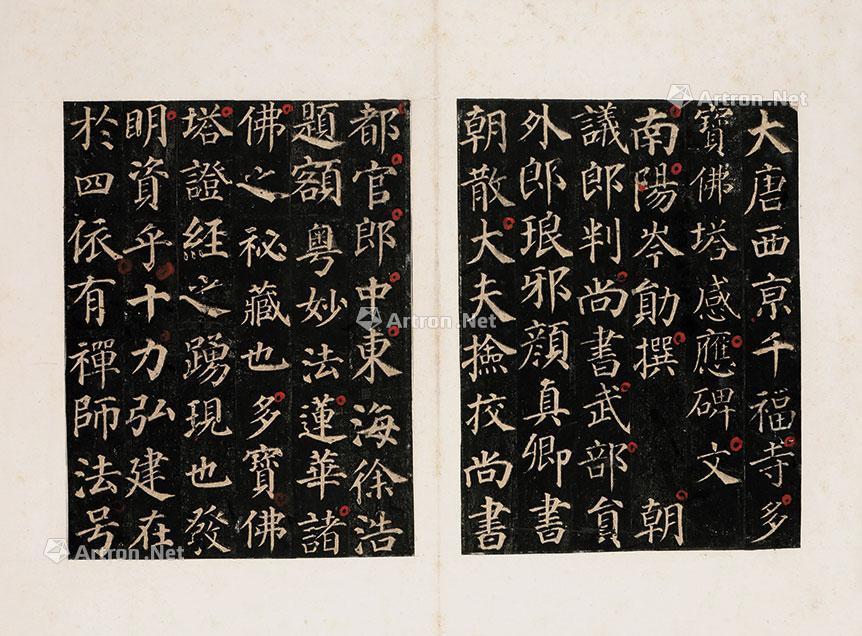 大唐西京千福寺多
寶佛塔感應碑文
南陽岑勛撰 朝
議郎判尚書武部員
外郎琅邪顏真卿書
朝散大夫撿挍尚書
都官郎中東海徐浩
題額粵妙法蓮華諸
佛之祕藏也多寶佛
塔證經之踴現也發
明資乎十力弘建在
於四依有禪師法号
Artron.Net
Artron.Net
Artron.Net
Artron.Net